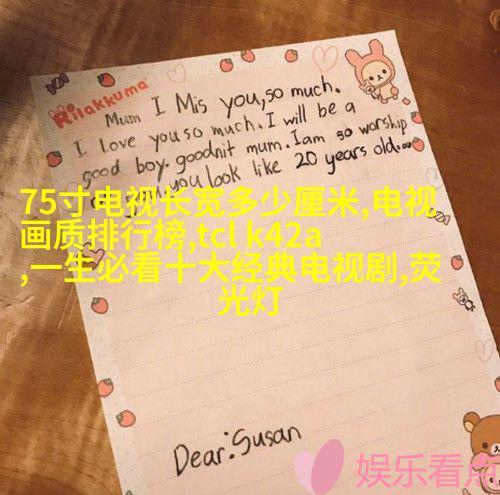 Rilakkuma
Mum I Mis you, so much.
I love you so much. I will be a
good boy. goodnit mum. I am so worship
you look like 20 years old...
75寸电视长宽多少厘米,电视
画质排行榜,tcl k42a
,一生必看十大经典电视剧,荧
光灯
Dear: Susan
娱乐看点